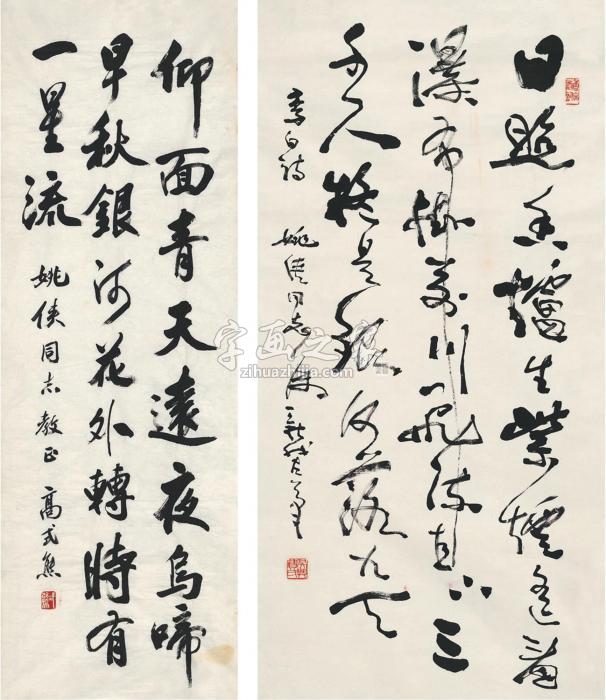 仰面青天遠夜烏啼
早秋銀河花外轉時有
一星流
姚俠同志教正 高式熊
日照香爐生紫煙遙看
瀑布掛前川飛流直下三
千尺疑是銀河落九天
李白詩
姚俠同志屬
字画之家
zihuazhijia.com